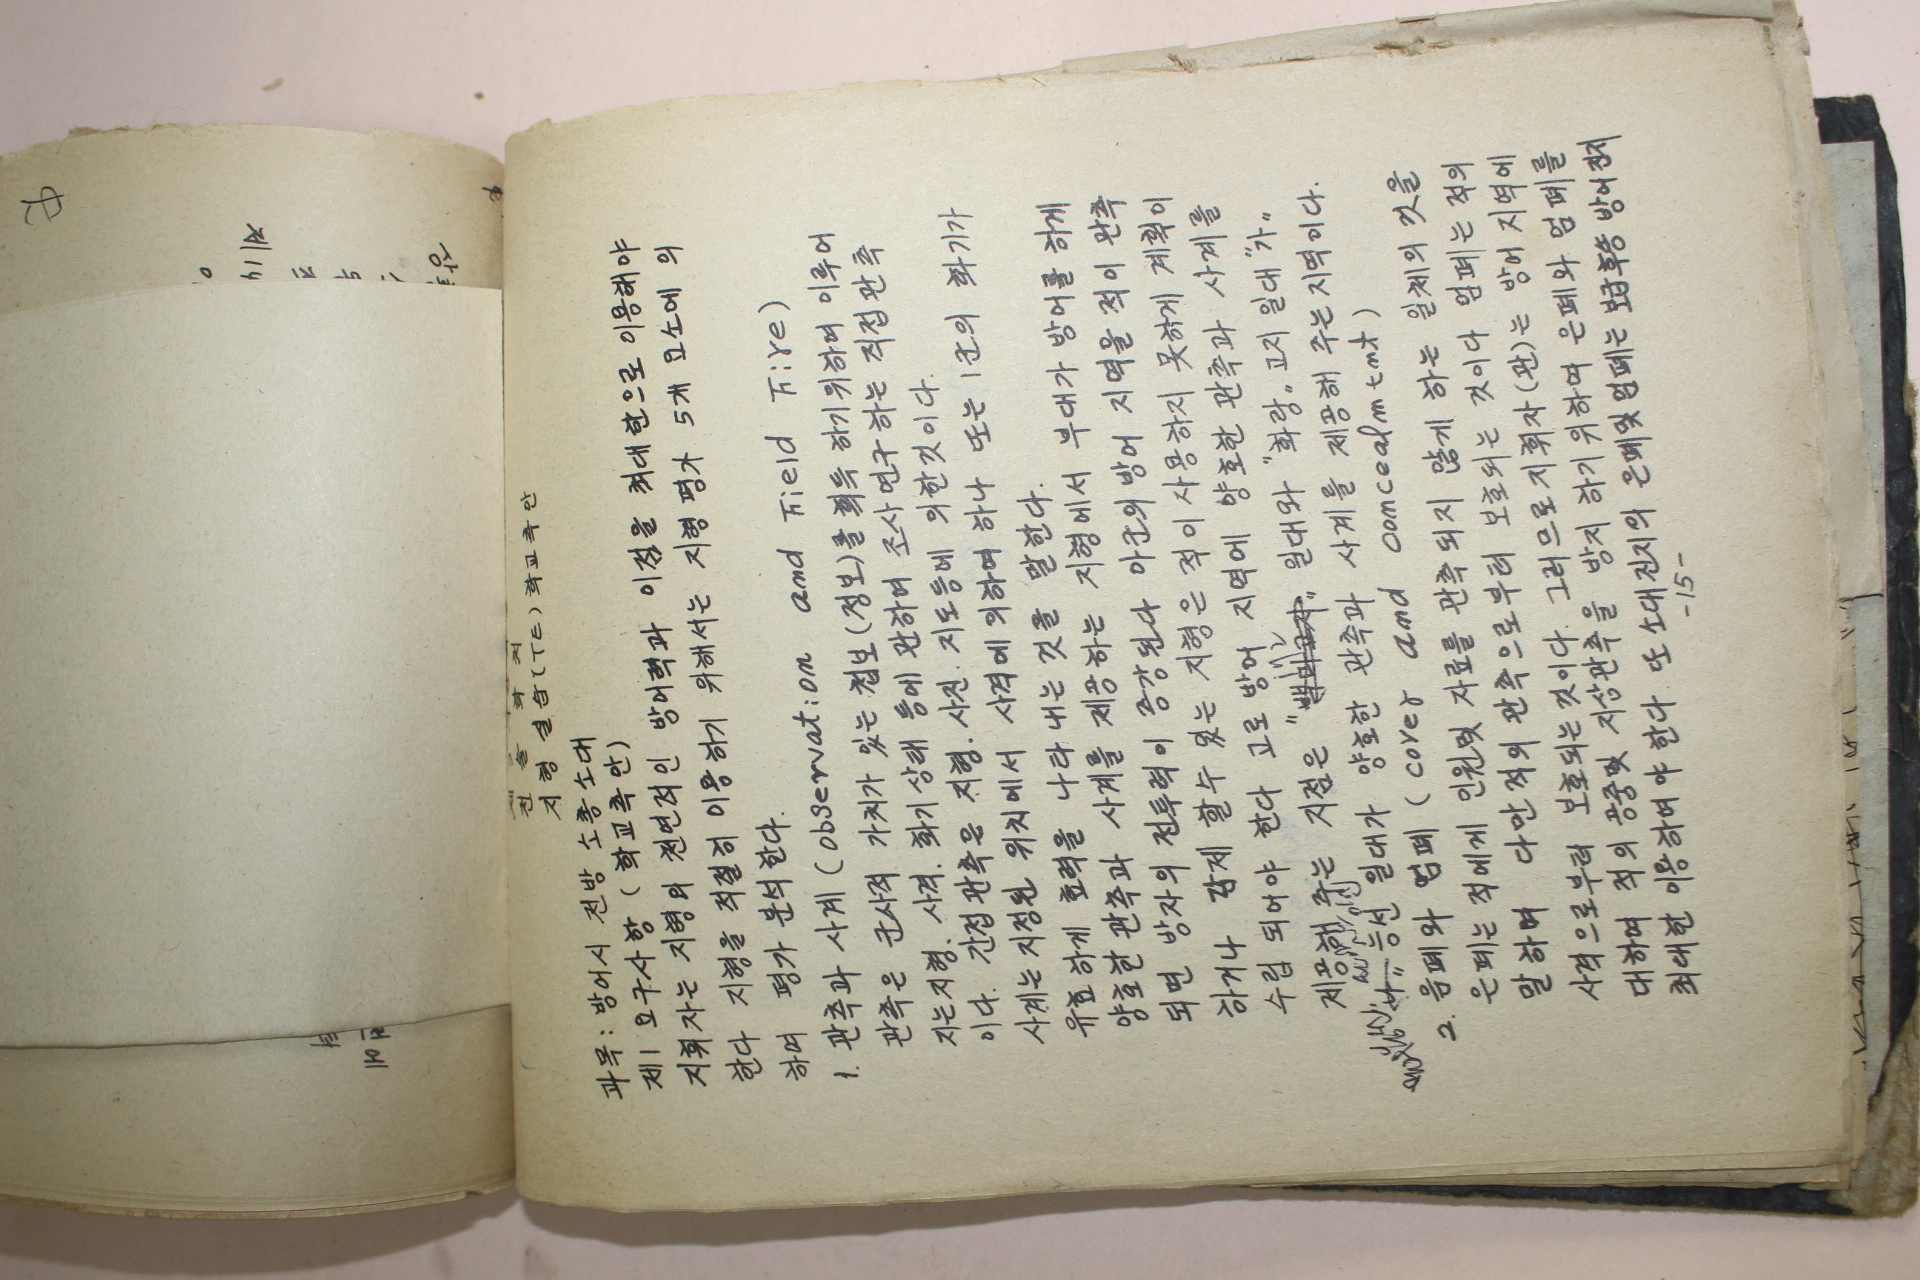 전술학처
지형실습(TE)학교측안
과목:방어시 전방 소총소대
제1 요구사항 (학교측안)
지휘자는 지형의 천연적인 방어력과 이점을 최대한으로 이용해야
한다 지형을 적절히 이용하기 위해서는 지형평가 5개 요소에 의
하여 평가 분석한다.
1. 관측과 사계 (observation and Field Fire)
관측은 군사적 가치가 있는 첩보(정보)를 획득하기위하여 이루어
지는지형. 사격. 화기상태등에 관하여 조사연구하는 직접관측
이다. 간접관측은 지형. 사진. 지도등에 의한것이다.
사계는지정된 위치에서 사격에 의하여 하나 또는 1군의 화기가
유효하게 효력을 나타내는 것을 말한다.
양호한관측과 사계를 제공하는 지형에서 부대가 방어를 하게
되면 방자의 전투력이 증강된다 아군의 방어 지역을 적이 관측
하거나 감제 할수 있는 지형은 적이 사용하지 못하게 계획이
수립 되어야 한다 고로 방어 지역에 양호한 관측과 사계를
제공해 주는 지점은 "백마고지" 일대와 "화랑" 고지일대 "가"
"나" 능선 일대가 양호한 관측과 사계를 제공해 주는 지역이다.
2. 음폐와 엄폐 (cover and concealmtmt)
은폐는 적에게 인원및 자료를 관측되지 않게 하는 일체의 것을
말하며 다만적의 관측으로부터 보호되는 것이다 엄폐는 적의
사격으로부터 보호되는 것이다. 그러므로지휘자(관)는 방어 지역에
대하여 적의 공중및 지상관측을 방지하기위하여 은폐와 엄폐를
최대한 이용하여야 한다 또 소대진지의 은폐및 엄폐는 보급추송 방어진지
-15-